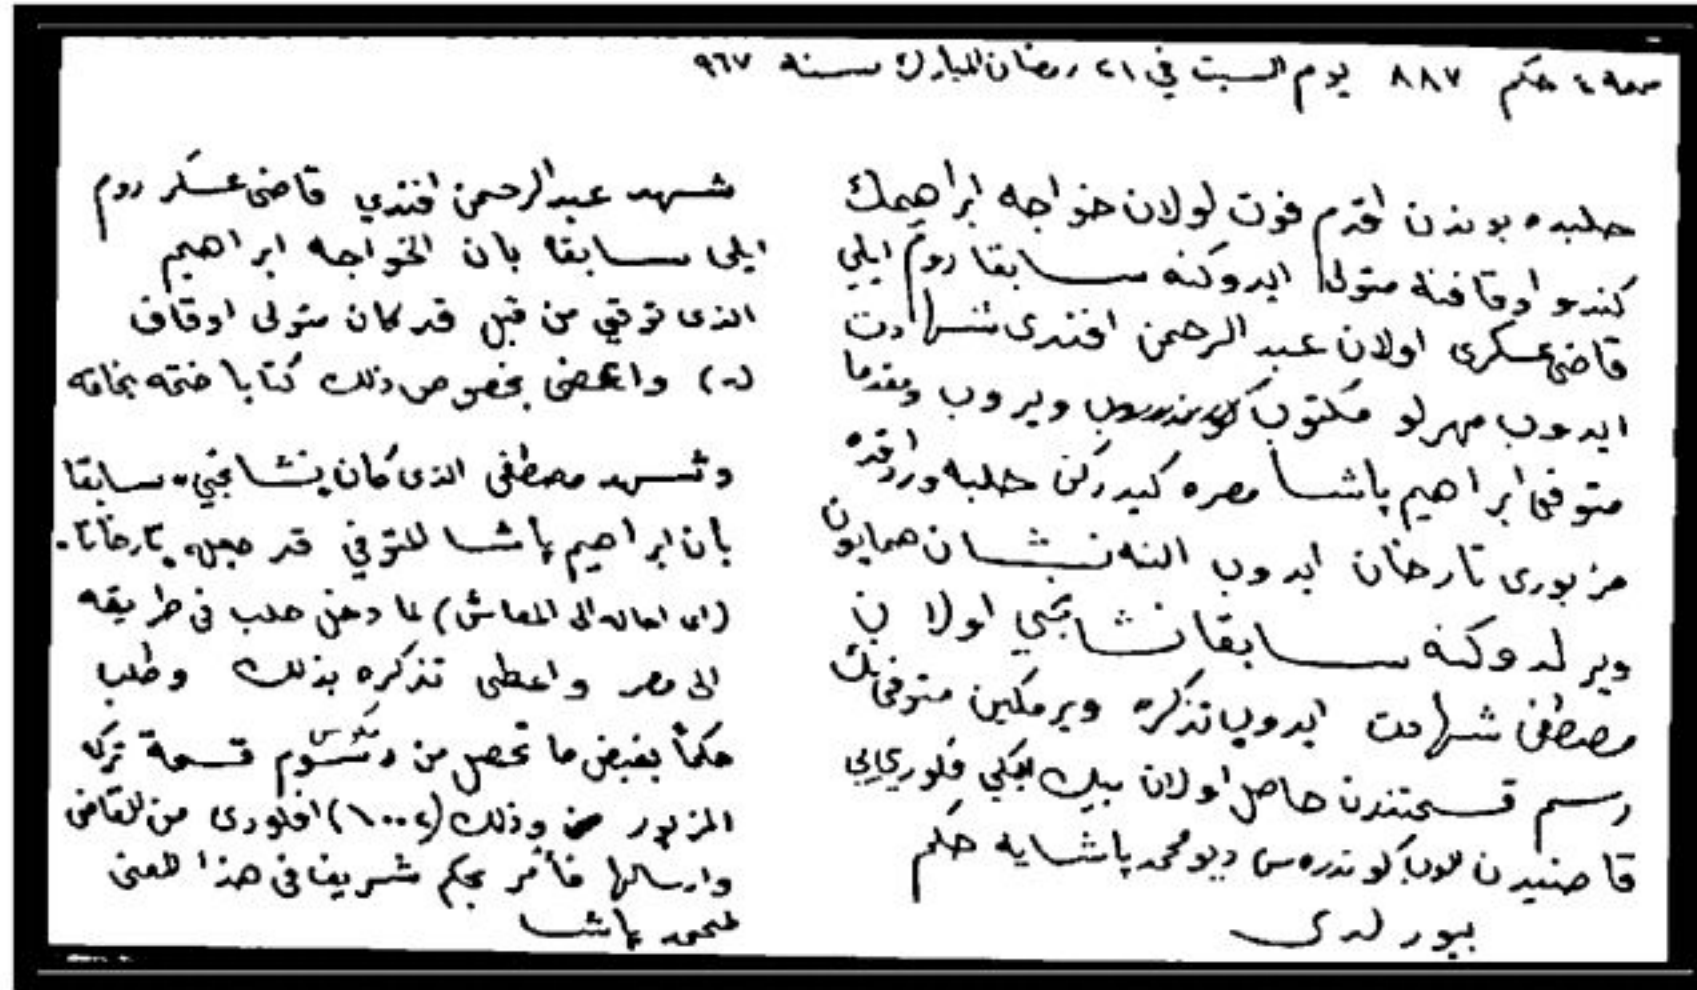 حكم ٨٨٧ يوم السبت في ٢١ رمضان المبارك سنه ٩٦٧
حلبده بوندن اقدم فوت اولان خواجه ابراهيمك
كندو اوقافنه متولى ايدوكنه سابقا روم ايلي
قاضيعسكرى اولان عبد الرحمن افندى شهادت
ايدوب مهرلو مكتوب ويروب ومقدما
متوفى ابراهيم پاشا مصره كيدركن حلبه واردقده
مزبورى تارخان ايدوب النه نشان همايون
ويرلدوكنه سابقا نشانجي اولان
مصطفى شهادت ايدوب تذكره ويرمكين متوفىنك
رسم قسمتندن حاصل اولان بيك ايكي فلوريي
قاضيدن الوب كوندره سن ديو محمد پاشايه حكم
بيورلدى
شهد عبد الرحمن افندي قاضى عسكر روم
ايلى سابقا بان الخواجه ابراهيم
الذى توفي من قبل قد كان متولى اوقاف
(له) واعطى بخصوص ذلك كتابا ختمه بخاتمه
وشهد مصطفى الذى كان نشانجي سابقا
بان ابراهيم پاشا المتوفي قد جعله تارخانا
(اى احاله الى المعاش) لما دخل حلب فى طريقه
الى مصر واعطى تذكره بذلك وطلب
حكماً بقبض ما تحصل من رسوم قسمة تركة
المزبور وذلك (١٠٠٢) افلورى من القاضى
وارسالها فأمر بحكم شريف فى هذا المعنى
لمحمد پاشا